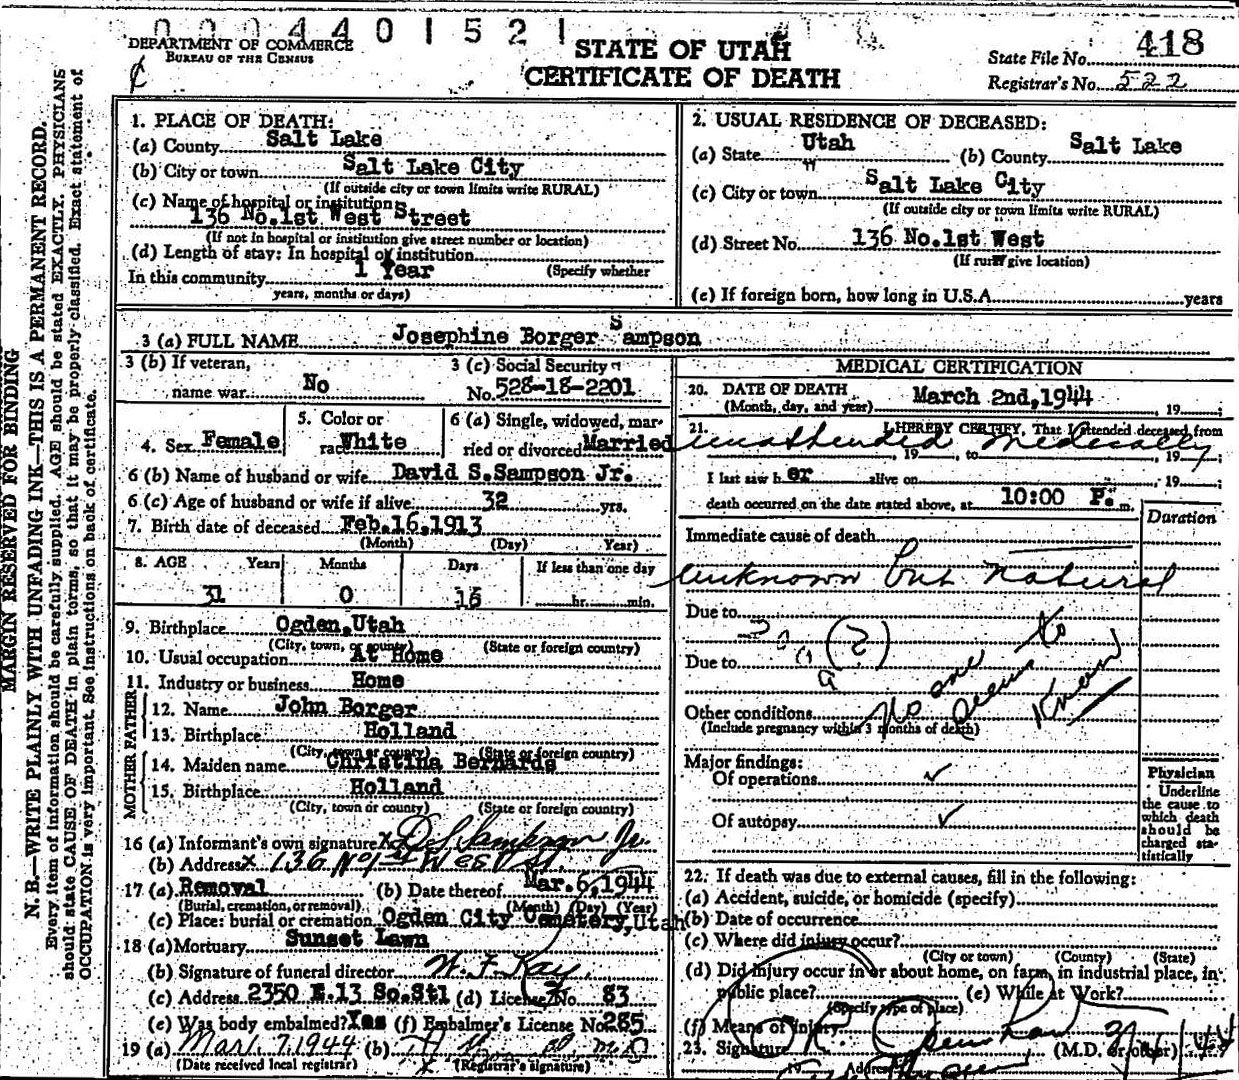 0004401521
DEPARTMENT OF COMMERCE
BUREAU OF THE CENSUS
STATE OF UTAH
CERTIFICATE OF DEATH
State File No. 418
Registrar's No. 522
MARGIN RESERVED FOR BINDING
N. B.—WRITE PLAINLY WITH UNFADING INK—THIS IS A PERMANENT RECORD.
Every item of information should be carefully supplied. AGE should be stated EXACTLY. PHYSICIANS
should state CAUSE OF DEATH in plain terms, so that it may be properly classified. Exact statement of
OCCUPATION is very important. See instructions on back of certificate.
1. PLACE OF DEATH:
(a) County Salt Lake
(b) City or town Salt Lake City
(If outside city or town limits write RURAL)
(c) Name of hospital or institution
136 No.1st West Street
(If not in hospital or institution give street number or location)
(d) Length of stay: In hospital or institution
In this community 1 Year (Specify whether
years, months or days)
2. USUAL RESIDENCE OF DECEASED:
(a) State Utah (b) County Salt Lake
(c) City or town Salt Lake City
(If outside city or town limits write RURAL)
(d) Street No. 136 No.1st West
(If rural give location)
(e) If foreign born, how long in U.S.A. years
3 (a) FULL NAME Josephine Borger Sampson
3 (b) If veteran,
name war No
3 (c) Social Security
No. 528-18-2201
4. Sex Female
5. Color or
race White
6 (a) Single, widowed, mar-
ried or divorced Married
6 (b) Name of husband or wife David S.Sampson Jr.
6 (c) Age of husband or wife if alive 32 yrs.
7. Birth date of deceased Feb.16,1913
(Month) (Day) (Year)
8. AGE Years Months Days If less than one day
31 0 16 hr. min.
9. Birthplace Ogden,Utah
(City, town, or county) (State or foreign country)
10. Usual occupation At Home
11. Industry or business Home
FATHER
12. Name John Borger
13. Birthplace Holland
(City, town or county) (State or foreign country)
MOTHER
14. Maiden name Christina Bernards
15. Birthplace Holland
(City, town or county) (State or foreign country)
16 (a) Informant's own signature X D S Sampson Jr.
(b) Address X 136 No 1st West St.
17 (a) Removal (b) Date thereof Mar.6,1944
(Burial, cremation, or removal) (Month) (Day) (Year)
(c) Place: burial or cremation Ogden City Cemetery,Utah
18 (a) Mortuary Sunset Lawn
(b) Signature of funeral director W. F. Kay
(c) Address 2350 E.13 So.Stl (d) License No. 83
(e) Was body embalmed? Yes (f) Embalmer's License No. 285
19 (a) Mar. 7, 1944 (b)
(Date received local registrar) (Registrar's signature)
MEDICAL CERTIFICATION
20. DATE OF DEATH March 2nd,1944
(Month, day, and year) , 19 ;
21. I HEREBY CERTIFY, That I attended deceased from
unattended medically
, 19 , to , 19 ;
I last saw h er alive on , 19 ;
death occurred on the date stated above, at 10:00 P. m.
Duration
Immediate cause of death
Unknown but natural
Due to
(?)
Due to
No one seems to know
Other conditions
(Include pregnancy within 3 months of death)
Major findings:
Of operations ✓
Of autopsy ✓
Physician
Underline
the cause to
which death
should be
charged sta-
tistically
22. If death was due to external causes, fill in the following:
(a) Accident, suicide, or homicide (specify)
(b) Date of occurrence
(c) Where did injury occur?
(City or town) (County) (State)
(d) Did injury occur in or about home, on farm, in industrial place, in
public place? (e) While at Work?
(Specify type of place)
(f) Means of injury
OK
23. Signature (M.D. or other)
Address